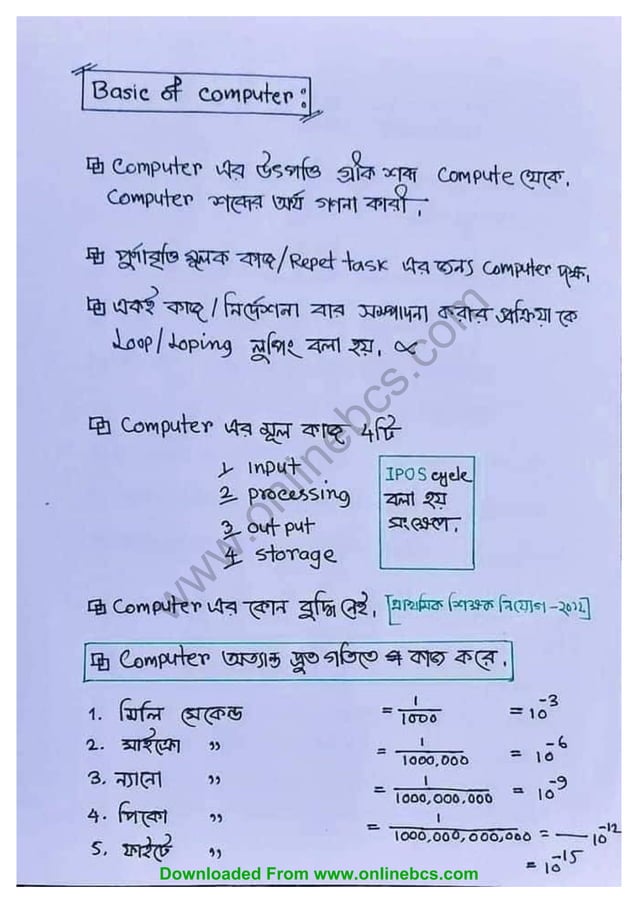 Basic of computer:
Computer এর উৎপত্তি গ্রীক শব্দ Compute থেকে,
Computer শব্দের অর্থ গণনা কারী,
মূলক কাজ/Repet task এর জন্য Computer দক্ষ,
একই কাজ/নির্দেশনা বার সম্পাদনা করার প্রক্রিয়া কে
Loop/Loping লুপিং বলা হয়,
Computer এর মূল কাজ 4টি
1 input
2 processing
3 out put
4 storage
IPOS cycle
বলা হয়
সংক্ষেপে,
Computer এর কোন বুদ্ধি নেই, [প্রাথমিক শিক্ষক নিয়োগ -২০১২]
Computer অত্যান্ত দ্রুত গতিতে কাজ করে,
1. মিলি সেকেন্ড = 1/1000 = 10⁻³
2. মাইক্রো " = 1/1000,000 = 10⁻⁶
3. ন্যানো " = 1/1000,000,000 = 10⁻⁹
4. পিকো " = 1/1000,000,000,000 = 10⁻¹²
5. " = 10⁻¹⁵
www.onlinebcs.com
Downloaded From www.onlinebcs.com